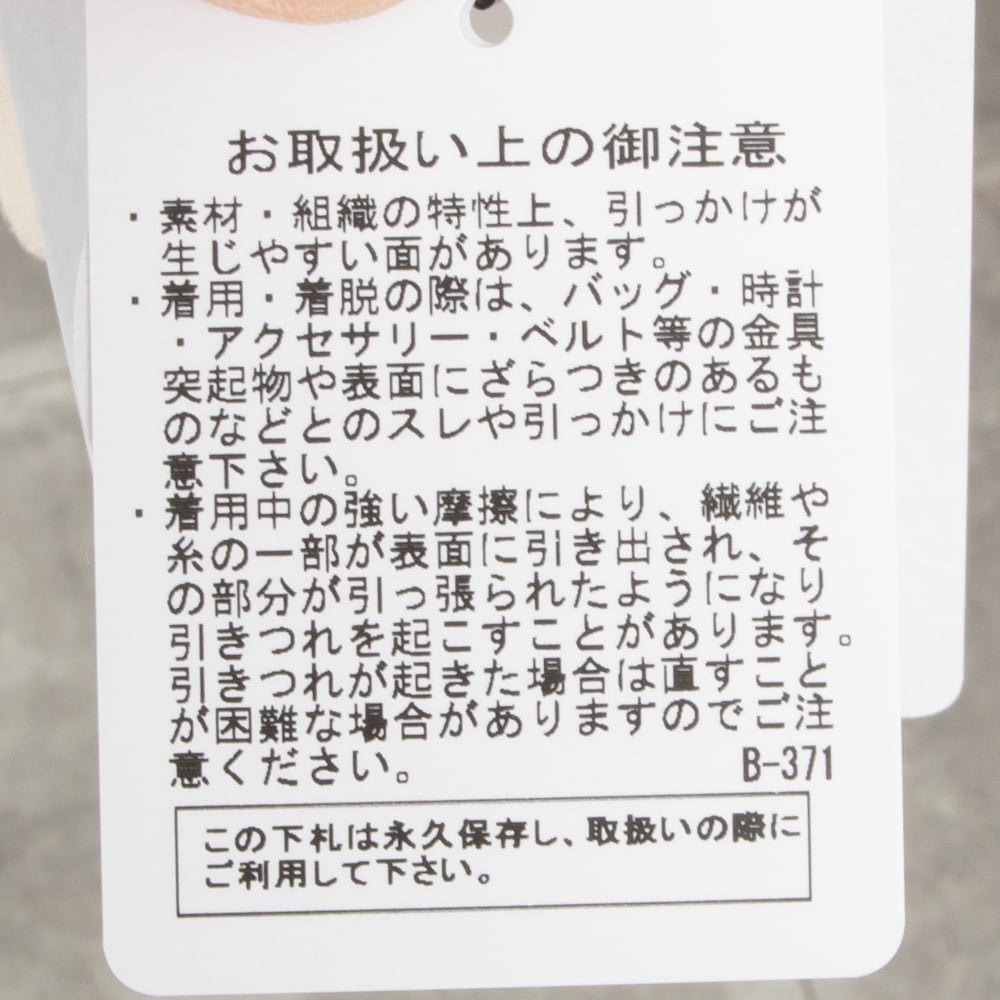 お取扱い上の御注意
・素材・組織の特性上、引っかけが
生じやすい面があります。
・着用・着脱の際は、バッグ・時計
・アクセサリー・ベルト等の金具
突起物や表面にざらつきのあるも
のなどとのスレや引っかけにご注
意下さい。
・着用中の強い摩擦により、繊維や
糸の一部が表面に引き出され、そ
の部分が引っ張られたようになり
引きつれを起こすことがあります。
引きつれが起きた場合は直すこと
が困難な場合がありますのでご注
意ください。 B-371
この下札は永久保存し、取扱いの際に
ご利用して下さい。